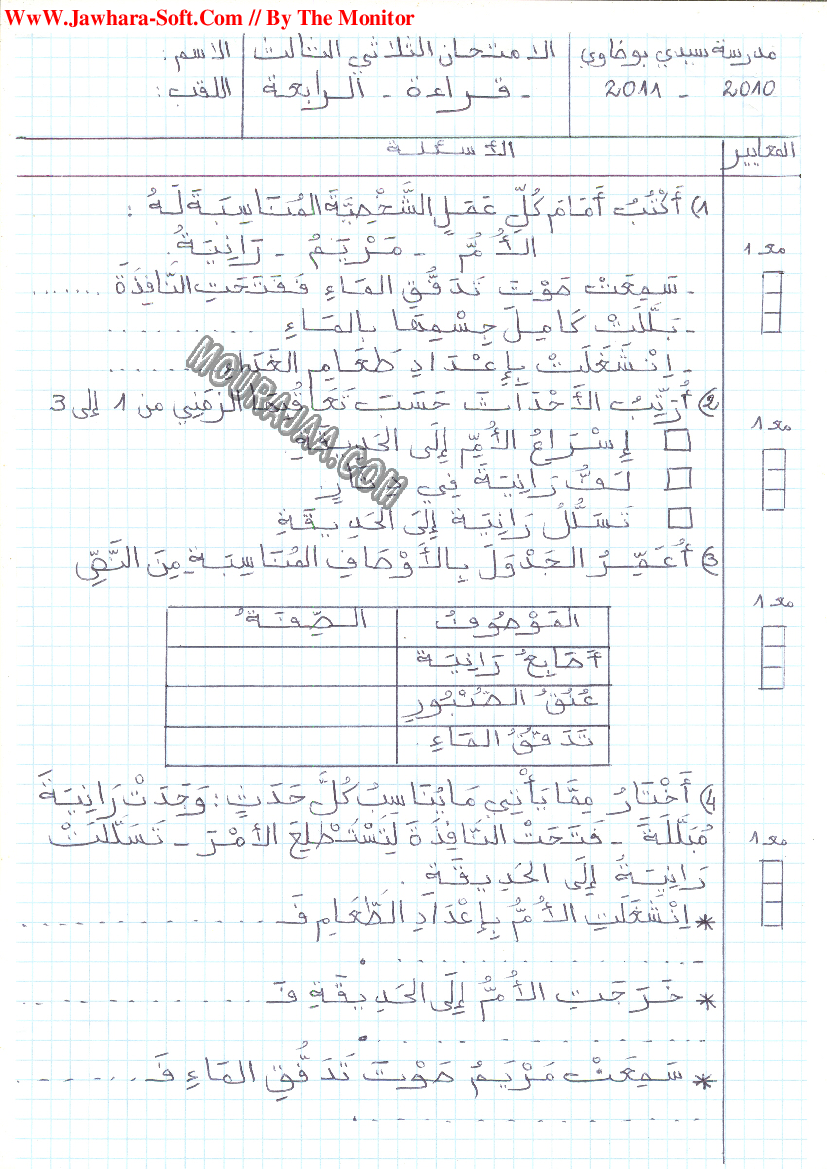 WwW.Jawhara-Soft.Com // By The Monitor
مدرسة سيدي بوضاوي
2010 - 2011
الامتحان الثلاثي الثالث
- قراءة - الرابعة
الاسم :
اللقب :
المعايير
الأسئلة
1) أَكْتُبُ أَمَامَ كُلِّ عَمَلٍ الشَّخْصِيَّةَ المُنَاسِبَةَ لَهُ :
الأُمُّ - مَرْيَمُ - رَانِيَةُ.
مع 1
- سَمِعَتْ صَوْتَ تَدَفُّقِ المَاءِ فَفَتَحَتِ النَّافِذَةَ ........
- بَلَّلَتْ كَامِلَ جِسْمِهَا بِالمَاءِ ..........
- اِنْشَغَلَتْ بِإِعْدَادِ طَعَامِ الغَدَاءِ ......
MOURAJAA.COM
2) أُرَتِّبُ الأَحْدَاثَ حَسَبَ تَعَاقُبِهَا الزَّمَنِي من 1 إلى 3
مع 1
□ إِسْرَاعُ الأُمِّ إِلَى الحَدِيقَةِ
□ لَفُّ رَانِيَةَ فِي دِثَارٍ
□ تَسَلُّلُ رَانِيَةَ إِلَى الحَدِيقَةِ
3) أُعَمِّرُ الجَدْوَلَ بِالأَوْصَافِ المُنَاسِبَةِ مِنَ النَّصِّ
مع 1
المَوْصُوفُ الصِّفَةُ
أَصَابِعُ رَانِيَةَ
عُنُقُ الصُّنْبُورِ
تَدَفُّقُ المَاءِ
4) أَخْتَارُ مِمَّا يَأْتِي مَا يُنَاسِبُ كُلَّ حَدَثٍ : وَجَدَتْ رَانِيَةَ
مُبَلَّلَةً - فَتَحَتْ النَّافِذَةَ لِتَسْتَطْلِعَ الأَمْرَ - تَسَلَّلَتْ
مع 1
رَانِيَةُ إِلَى الحَدِيقَة .
* اِنْشَغَلَتِ الأُمُّ بِإِعْدَادِ الطَّعَامِ فَـ ..............
* خَرَجَتِ الأُمُّ إِلَى الحَدِيقَةِ فَـ ..............
* سَمِعَتْ مَرْيَمُ صَوْتَ تَدَفُّقِ المَاءِ فَـ ..........